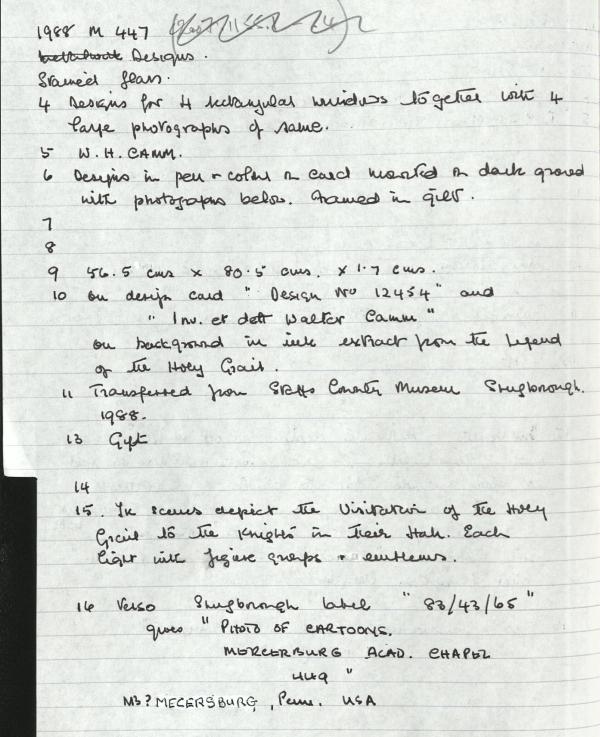 1988 M 447
Designs.
Stained glass.
4 Designs for 4 rectangular windows together with 4
large photographs of same.
5 W.H. CAMM.
6 Designs in pen + colour on card mounted on dark ground
with photographs below. Framed in gilt.
7
8
9 56.5 cms x 80.5 cms. x 1.7 cms.
10 on design card " Design No 12454 " and
" Inv. et delt Walter Camm "
on background in ink extract from the Legend
of the Holy Grail.
11 Transferred from Staffs County Museum Shugborough.
1988.
13 Gift
14
15. The scenes depict the Visitation of the Holy
Grail to the Knights in their Hall. Each
light with figure groups + emblems.
16 Verso Shugborough label " 83/43/65 "
gives " PHOTO OF CARTOONS.
MERCERBURG ACAD. CHAPEL
449 "
NB? MECERSBURG, Penn. USA